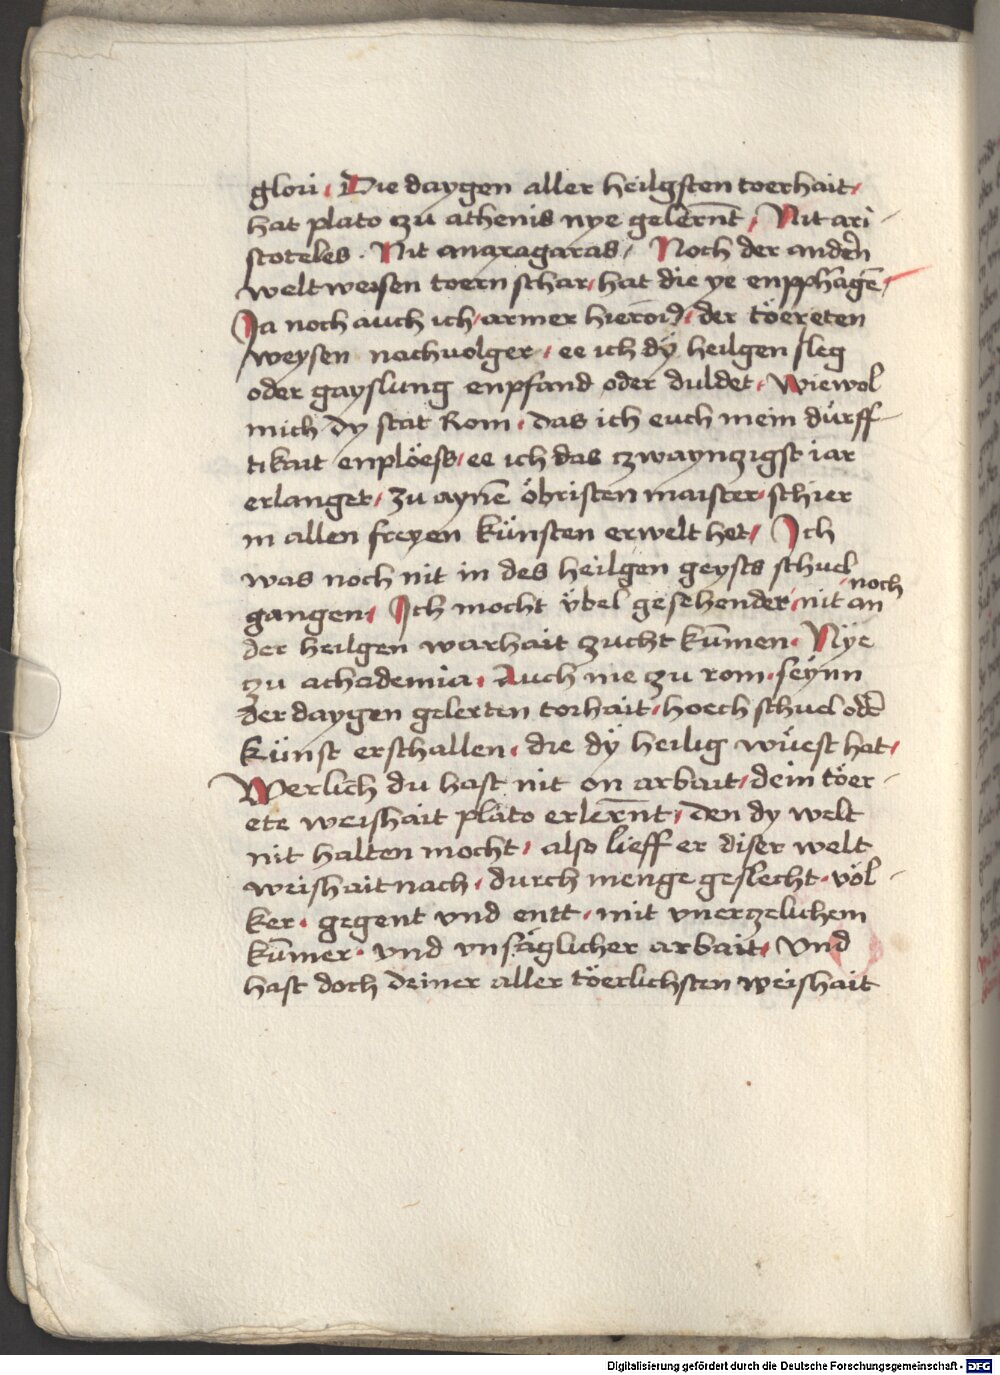 glori / Die daygen aller heilgsten toerhait /
hat plato zu athenis nye gelern̄t / Nit ari-
stoteles . Nit anaxagaras / Noch der andern̄
weltweisen toern schar / hat die ye enpphāgē /
Ja noch auch ich / armer hieronī9 / der töereten
weysen nachuolger / ee ich dÿ heilgen sleg
oder gayslung enpfand oder duldet / Wiewol
mich dy stat Rom / das ich euch mein dürff-
tikait enplöess / ee ich das zwaynzigst iar
erlanget / Zu aynē öbristen maister / schier
in allen freyen künsten erwelt het / Ich
was noch nit in des heilgen geysts schuel
gangen / Ich mocht übel gesehender / nit noch an
der heilgen warhait zucht kūmen . Nÿe
zu achademia / Auch nie zu rom / seynn
der daygen gelerten torhait / hoech schuel oder̄
künst erschallen / die dÿ heilig wüest hat /
Werlich du hast nit on arbait / dein töer-
ete weishait plato erlern̄t / den dy welt
nit halten mocht / also lieff er diser welt
weishait nach / durch menge geslecht / völ-
ker . gegent vnd entt / mit vnerzelichem
kūmer / vnd vnsäglicher arbait / Vnd
hast doch deiner aller töerlichsten weishait
Digitalisierung gefördert durch die Deutsche Forschungsgemeinschaft - DFG